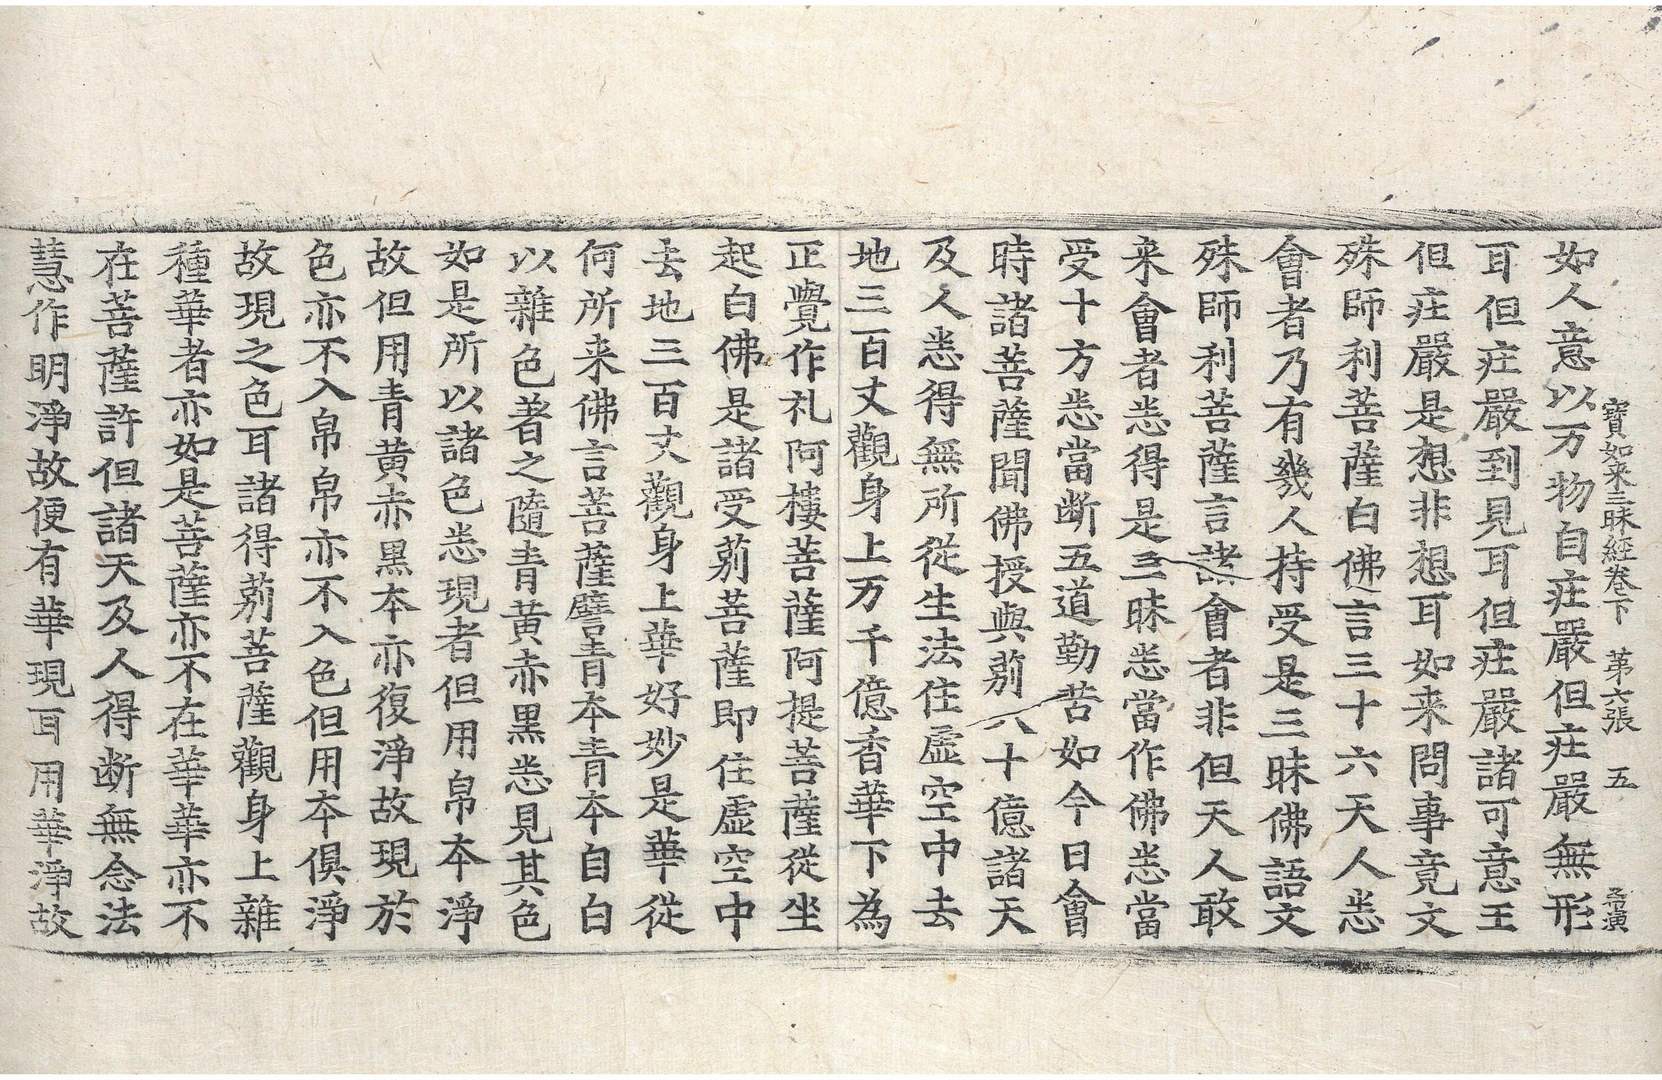 寶如来三昧經卷下　第六張　五
如人意以万物自庄嚴但庄嚴無形
耳但庄嚴到見耳但庄嚴諸可意王
但庄嚴是想非想耳如来問事竟文
殊師利菩薩白佛言三十六天人悉
會者乃有幾人持受是三昧佛語文
殊師利菩薩言諸會者非但天人敢
来會者悉得是三昧悉當作佛悉當
受十方悉當断五道勤苦如今日會
時諸菩薩聞佛授與莂八十億諸天
及人悉得無所從生法住虛空中去
地三百丈觀身上万千億香華下為
正覺作礼阿樓菩薩阿提菩薩從坐
起白佛是諸受莂菩薩即住虛空中
去地三百丈觀身上華好妙是華從
何所来佛言菩薩譬青本青本自白
以雜色著之隨青黄赤黒悉見其色
如是所以諸色悉現者但用帛本淨
故但用青黄赤黒本亦復淨故現於
色亦不入帛帛亦不入色但用本俱淨
故現之色耳諸得莂菩薩觀身上雜
種華者亦如是菩薩亦不在華華亦不
在菩薩許但諸天及人得断無念法
慧作明淨故便有華現耳用華淨故